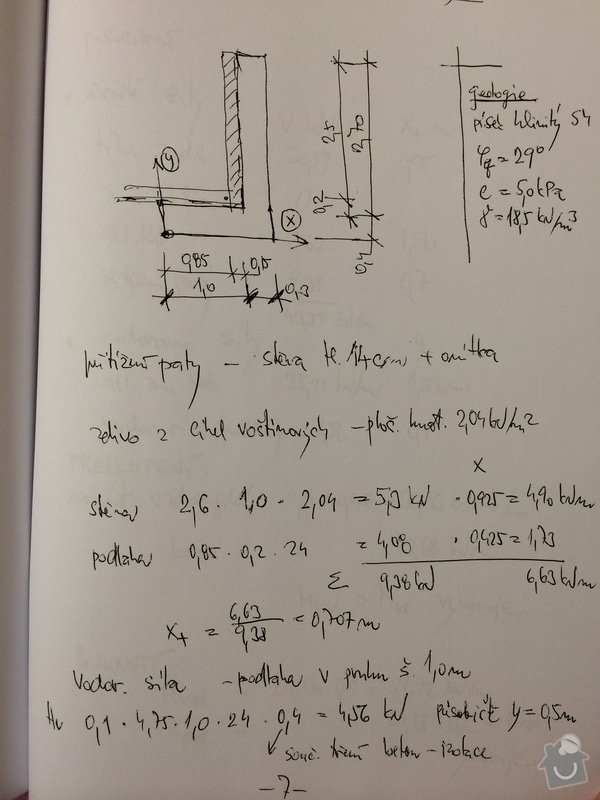 y
x
2,5
2,70
0,2
0,4
0,85
0,15
1,0
0,3
geologie
písek hlinitý S4
φ = 29°
c = 5,0 kPa
γ = 18,5 kN/m³
přitížení paty – stěna tl. 14 cm + omítka
zdivo z cihel voštinových – ploš. hmot. 2,04 kN/m²
x
stěna 2,6 · 1,0 · 2,04 = 5,3 kN · 0,925 = 4,90 kNm
podlaha 0,85 · 0,2 · 24 = 4,08 · 0,425 = 1,73
Σ 9,38 kN 6,63 kNm
x₊ = 6,63 / 9,38 = 0,707 m
Vodor. síla – podlaha v pruhu š. 1,0 m
Hv 0,1 · 4,75 · 1,0 · 24 · 0,4 = 4,56 kN působiště y = 0,5 m
souč. tření beton – izolace
– 7 –